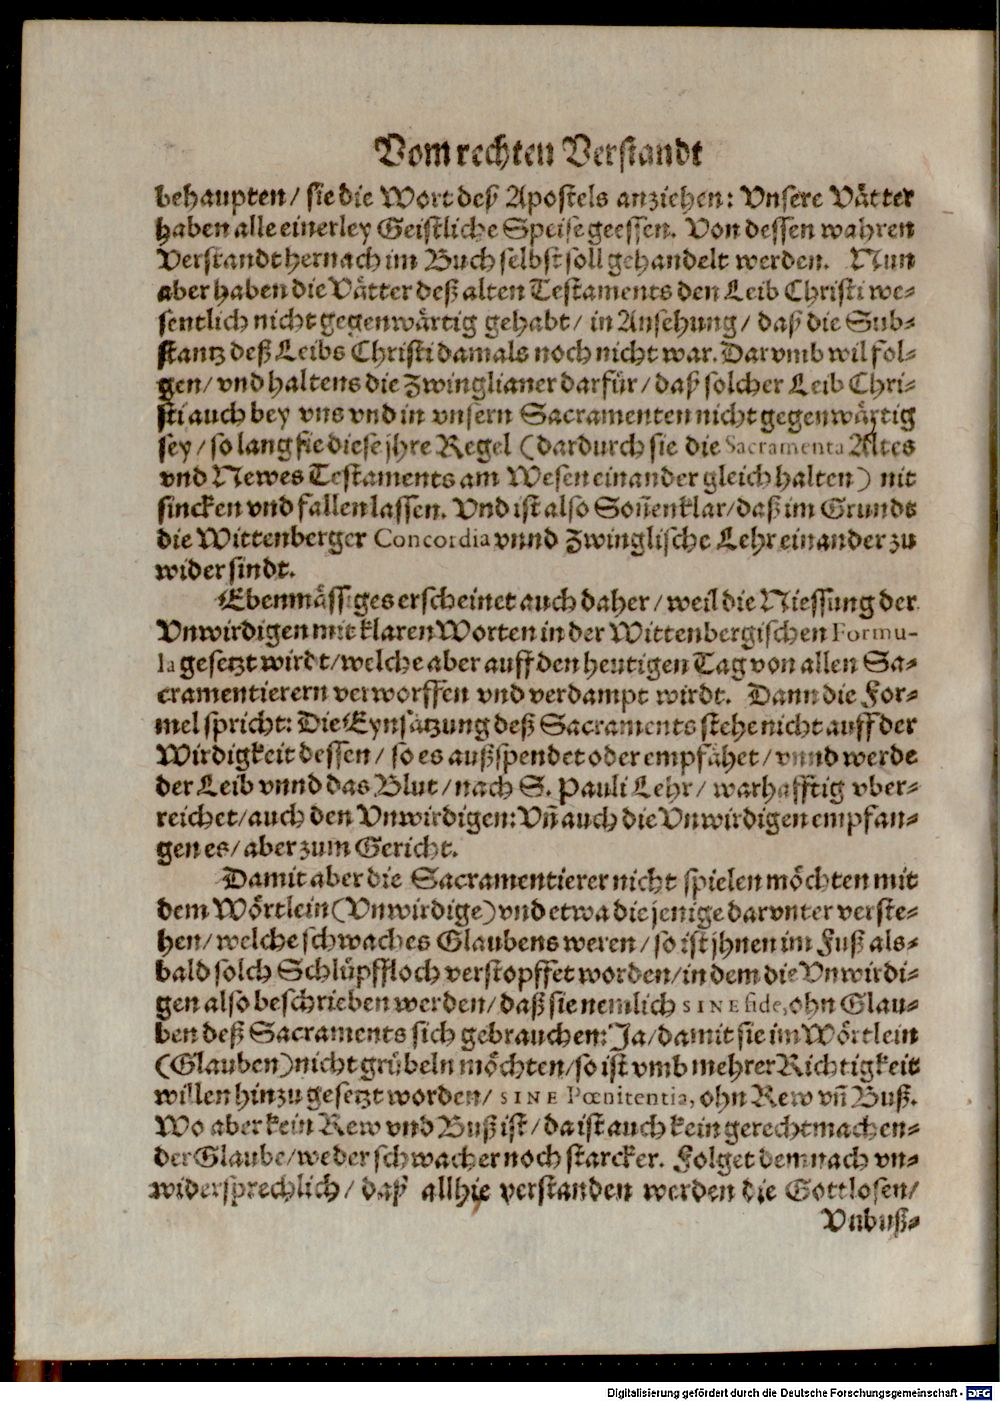 Vom rechten Verstandt
behaupten/ sie die Wort deß Apostels anziehen: Vnsere Vätter
haben alle einerley Geistliche Speise geessen. Von dessen wahren
Verstandt hernach im Buch selbst soll gehandelt werden. Nun
aber haben die Vätter deß alten Testaments den Leib Christi we-
sentlich nicht gegenwärtig gehabt/ in Ansehung/ daß die Sub-
stantz deß Leibs Christi damals noch nicht war. Darvmb wil fol-
gen/ vnd haltens die Zwinglianer darfür/ daß solcher Leib Chri-
sti auch bey vns vnd in vnsern Sacramenten nicht gegenwärtig
sey/ so lang sie diese jhre Regel (dardurch sie die Sacramenta Altes
vnd Newes Testaments am Wesen einander gleich halten) nit
sincken vnd fallen lassen. Vnd ist also Soñenklar/ daß im Grunde
die Wittenberger Concordia vnnd Zwinglische Lehr einander zu
wider sindt.
Ebenmässiges erscheinet auch daher/ weil die Niessung der
Vnwirdigen mit klaren Worten in der Wittenbergischen Formu-
la gesetzt wirdt/ welche aber auff den heutigen Tag von allen Sa-
cramentierern verworffen vnd verdampt wirdt. Dann die For-
mel spricht: Die Eynsatzung deß Sacraments stehe nicht auff der
Wirdigkeit dessen/ so es außspendet oder empfähet/ vnnd werde
der Leib vnnd das Blut/ nach S. Pauli Lehr/ warhafftig vber-
reichet/ auch den Vnwirdigen: Vñ auch die Vnwirdigen empfan-
gen es/ aber zum Gericht.
Damit aber die Sacramentierer nicht spielen möchten mit
dem Wörtlein (Vnwirdige) vnd etwa die jenige darvnter verste-
hen/ welche schwaches Glaubens weren/ so ist jhnen im Fuß als-
bald solch Schlüpffloch verstopffet worden/ in dem die Vnwirdi-
gen also beschrieben werden/ daß sie nemlich SINE fide, ohn Glau-
ben deß Sacraments sich gebrauchen: Ja/ damit sie im Wörtlein
(Glauben) nicht grübeln möchten/ so ist vmb mehrer Richtigkeit
willen hinzu gesetzt worden/ SINE Pœnitentia, ohn Rew vñ Buß.
Wo aber kein Rew vnd Buß ist/ da ist auch kein gerechtmachen-
der Glaube/ weder schwacher noch starcker. Folget demnach vn-
widersprechlich/ daß allhie verstanden werden die Gottlosen/
Vnbuß-
Digitalisierung gefördert durch die Deutsche Forschungsgemeinschaft - DFG